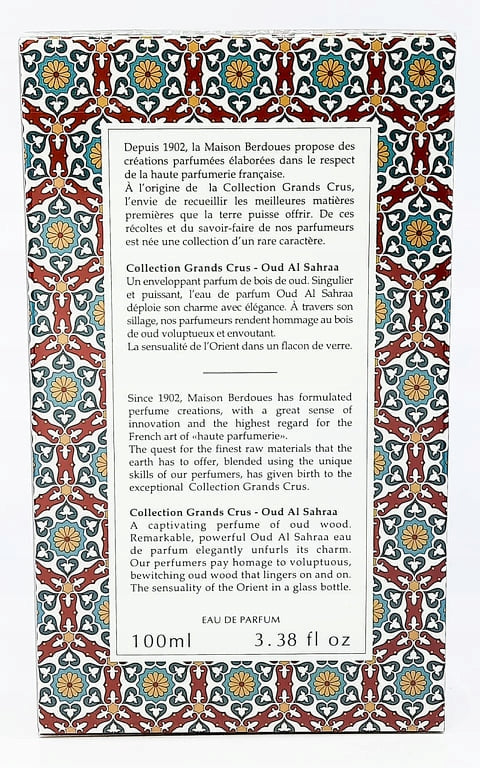 Depuis 1902, la Maison Berdoues propose des
créations parfumées élaborées dans le respect
de la haute parfumerie française.
À l'origine de la Collection Grands Crus,
l'envie de recueillir les meilleures matières
premières que la terre puisse offrir. De ces
récoltes et du savoir-faire de nos parfumeurs
est née une collection d'un rare caractère.
Collection Grands Crus - Oud Al Sahraa
Un enveloppant parfum de bois de oud. Singulier
et puissant, l'eau de parfum Oud Al Sahraa
déploie son charme avec élégance. À travers son
sillage, nos parfumeurs rendent hommage au bois
de oud voluptueux et envoutant.
La sensualité de l'Orient dans un flacon de verre.
Since 1902, Maison Berdoues has formulated
perfume creations, with a great sense of
innovation and the highest regard for the
French art of «haute parfumerie».
The quest for the finest raw materials that the
earth has to offer, blended using the unique
skills of our perfumers, has given birth to the
exceptional Collection Grands Crus.
Collection Grands Crus - Oud Al Sahraa
A captivating perfume of oud wood.
Remarkable, powerful Oud Al Sahraa eau
de parfum elegantly unfurls its charm.
Our perfumers pay homage to voluptuous,
bewitching oud wood that lingers on and on.
The sensuality of the Orient in a glass bottle.
EAU DE PARFUM
100ml 3.38 fl oz